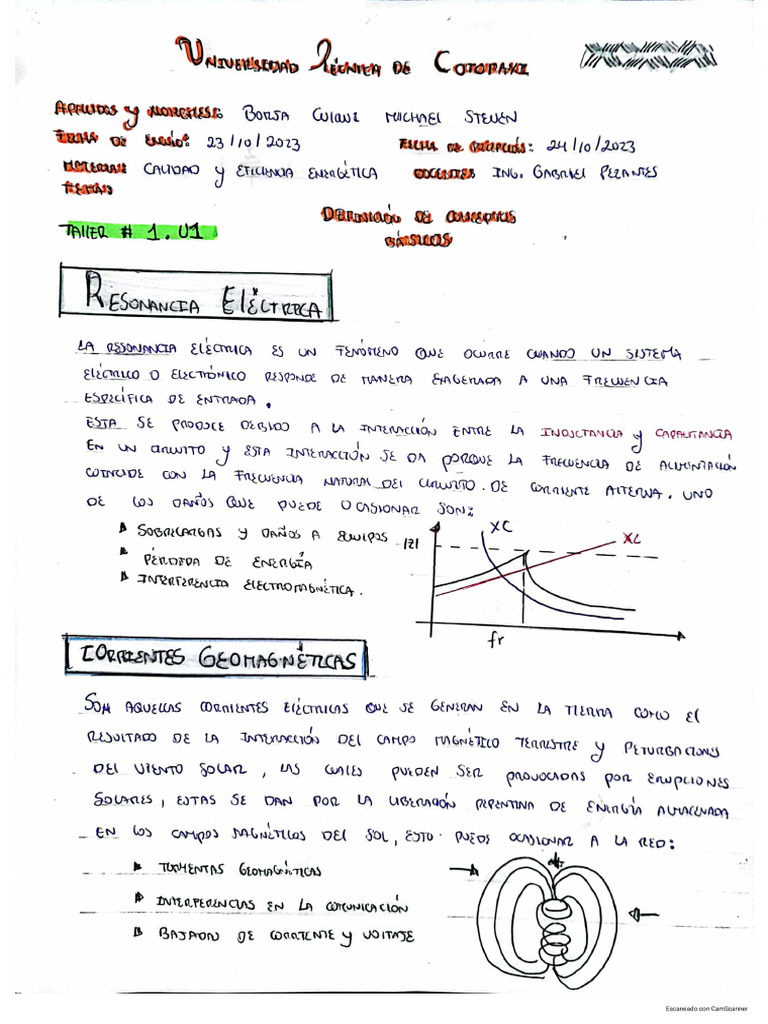 Universidad Técnica de Cotopaxi
Apellidos y Nombres: Borja Cuiane Michael Steven
Fecha de envío: 23/10/2023 Fecha de recepción: 24/10/2023
Materia: Calidad y Eficiencia Energética Docente: Ing. Gabriel Pezantes
Tema: Definición de conceptos
Taller # 1. U1 básicos
Resonancia Eléctrica
La resonancia eléctrica es un fenómeno que ocurre cuando un sistema
eléctrico o electrónico responde de manera exagerada a una frecuencia
específica de entrada.
Esta se produce debido a la interacción entre la inductancia y capacitancia
en un circuito y esta interacción se da porque la frecuencia de alimentación
coincide con la frecuencia natural del circuito. de corriente alterna. uno
de los daños que puede ocasionar son:
Sobrecargas y daños a equipos
Pérdida de energía
Interferencia electromagnética.
|Z|
XC
XL
fr
Corrientes Geomagnéticas
Son aquellas corrientes eléctricas que se generan en la tierra como el
resultado de la interacción del campo magnético terrestre y peturbaciones
del viento solar, las cuales pueden ser provocadas por erupciones
solares, estas se dan por la liberación repentina de energía almacenada
en los campos magnéticos del sol, esto puede ocasionar a la red:
Tormentas geomagnéticas
Interferencias en la comunicación
de corriente y voltaje
Escaneado con CamScanner